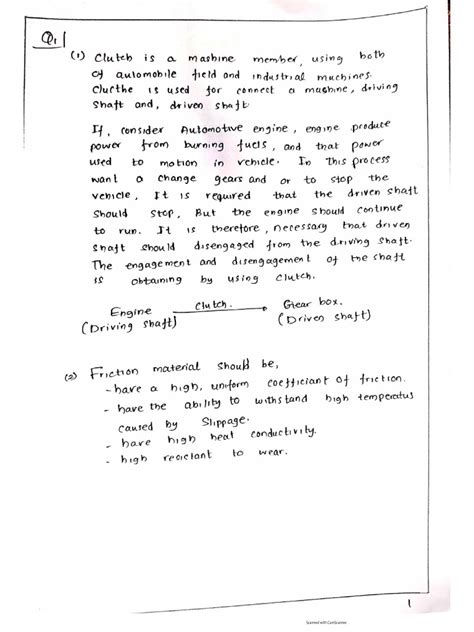 Q1
(1) Clutch is a mashine member, using both
of automobile field and industrial machines.
Clucthe is used for connect a machine, driving
shaft and, driven shaft.
If, consider Automotive engine, engine produce
power from burning fuels, and that power
used to motion in vehicle. In this process
want a change gears and or to stop the
vehicle, It is required that the driven shaft
should stop, But the engine should continue
to run. It is therefore, necessary that driven
shaft should disengaged from the driving shaft.
The engagement and disengagement of the shaft
is obtaining by using clutch.
Engine Clutch. Gear box.
(Driving shaft) (Driven shaft)
(2) Friction material should be,
- have a high, uniform coefficiant of friction.
- have the ability to withstand high temperatus
caused by slippage.
- have high heat conductivity.
- high recictant to wear.
1
Scanned with CamScanner